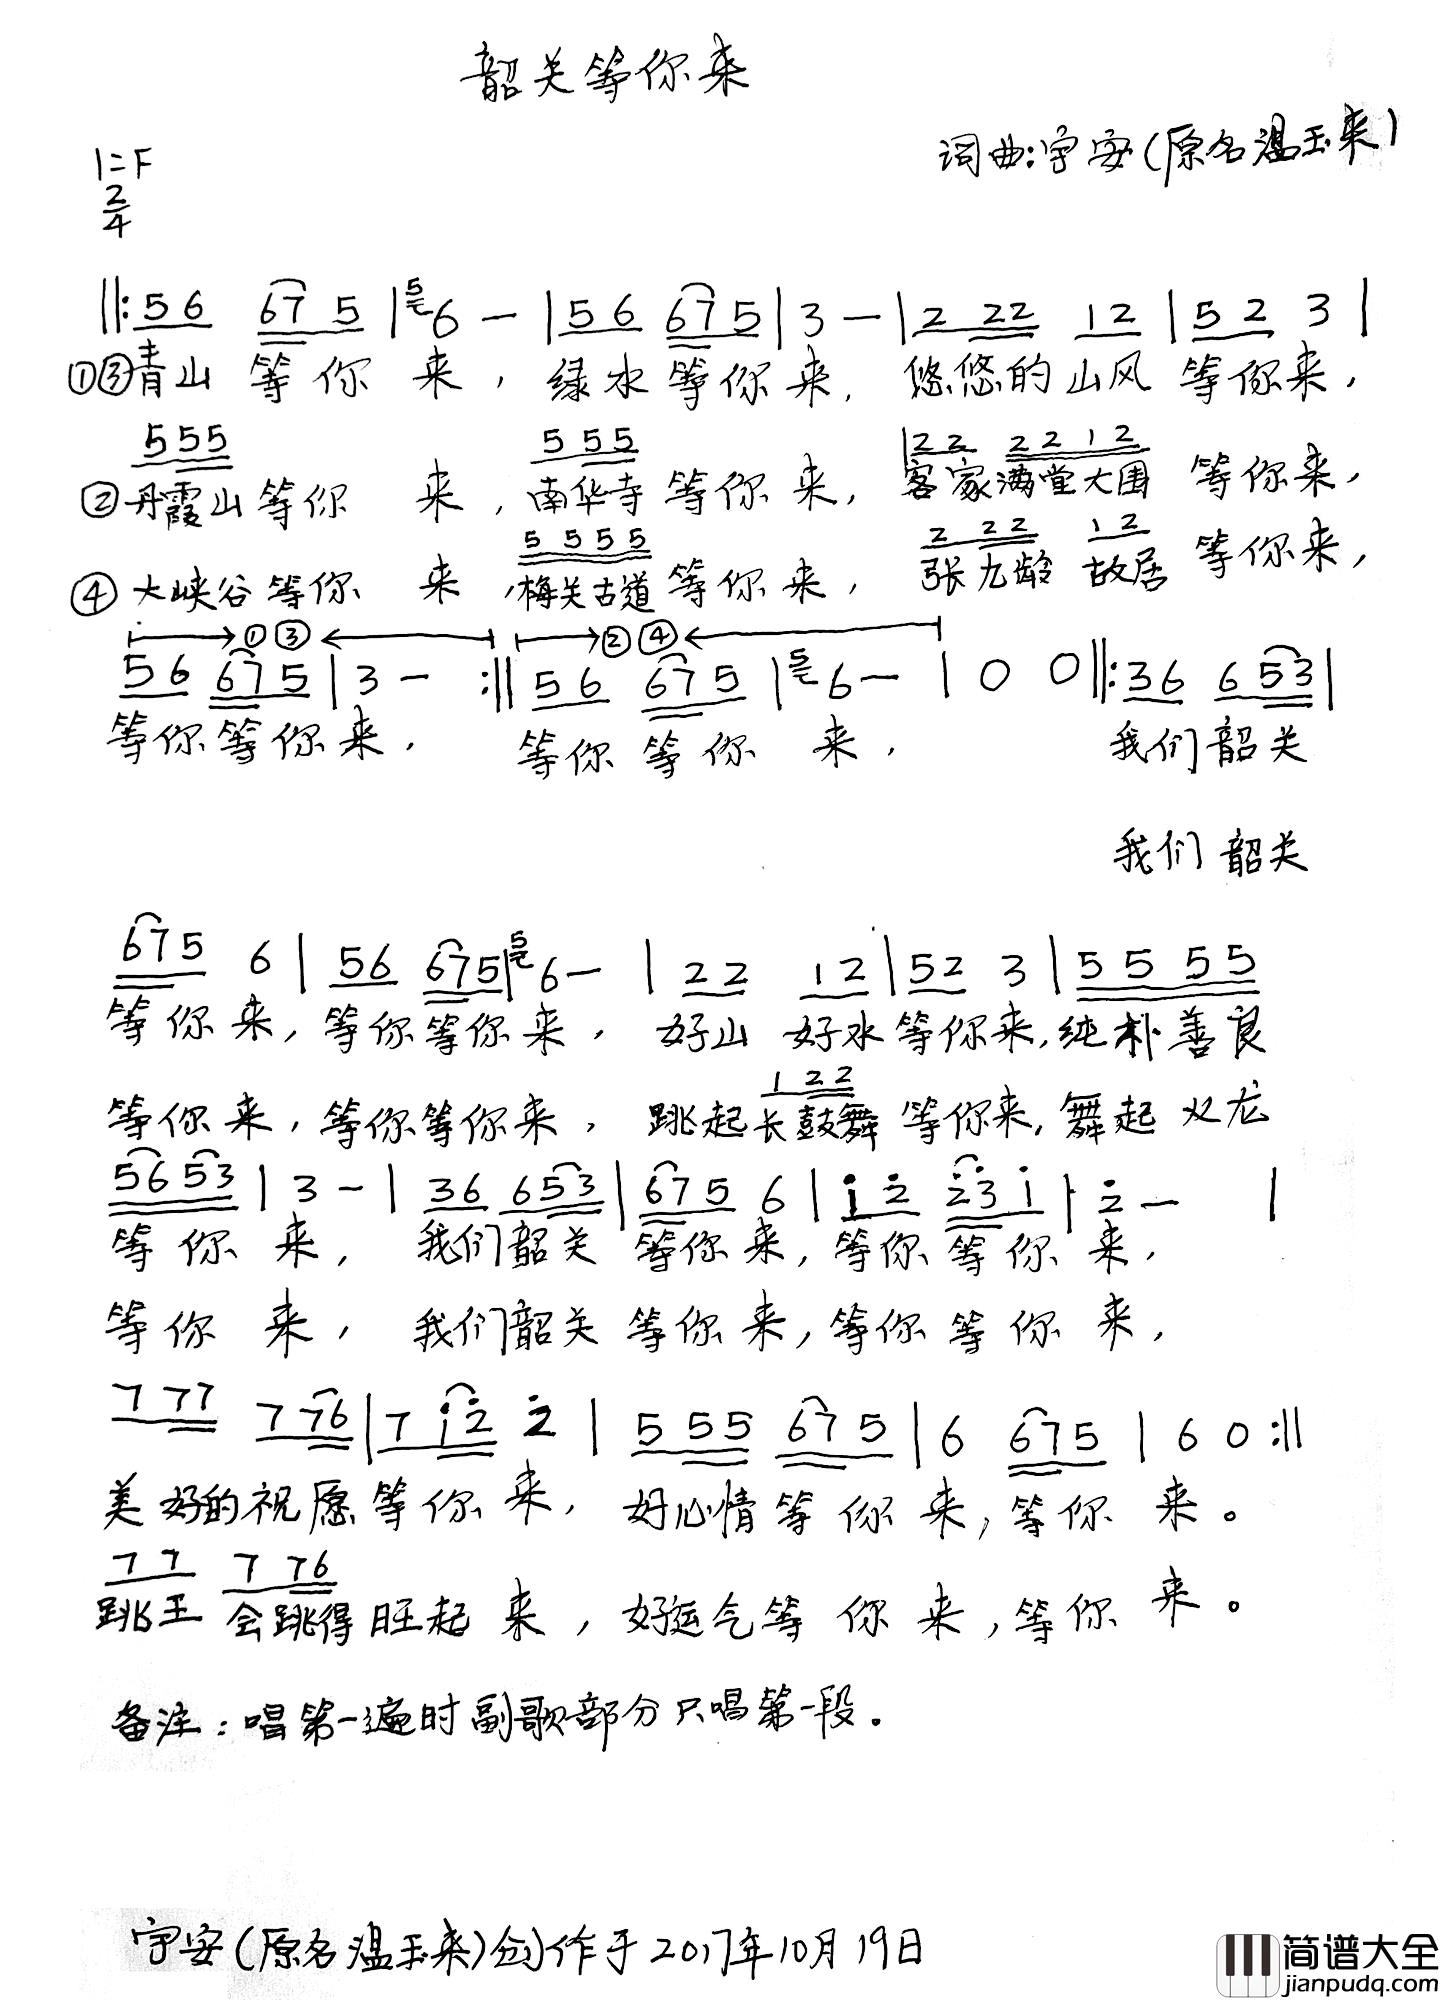 韶关等你来
词曲:宇安(原名温玉来)
1=F
2/4
‖:56 67 5|5 6 — |56 67 5|3 — |2 22 12|52 3|
①③青山 等你 来, 绿水等你来, 悠悠的山风 等你来,
555 555 22 2212
②丹霞山等你 来, 南华寺等你来, 客家满堂大围 等你来,
5555 2 22 12
④大峡谷等你 来,梅关古道等你来, 张九龄 故居 等你来,
①③ ②④
56 675|3 — :‖56 67 5|5 6 — |0 0‖:36 653|
等你等你来, 等你等你 来, 我们韶关
我们韶关
675 6|56 675|5 6 — |22 12|52 3|5555
等你来,等你等你来, 好山 好水等你来,纯朴善良
1 22
等你来,等你等你来, 跳起长鼓舞 等你来,舞起双龙
5653|3 — |36 653|675 6|i 2 23i|2 — |
等你来, 我们韶关 等你来,等你等你来,
等你来, 我们韶关 等你来,等你等你来,
7 77 7 76|7 i2 2|5 55 67 5|6 675|6 0:‖
美好的祝愿等你来, 好心情等你来,等你来。
77 7 76
跳王 会跳得旺起来, 好运气等你来,等你来。
备注:唱第一遍时副歌部分只唱第一段。
宇安(原名温玉来)创作于2017年10月19日
简谱大全
jianpudq.com